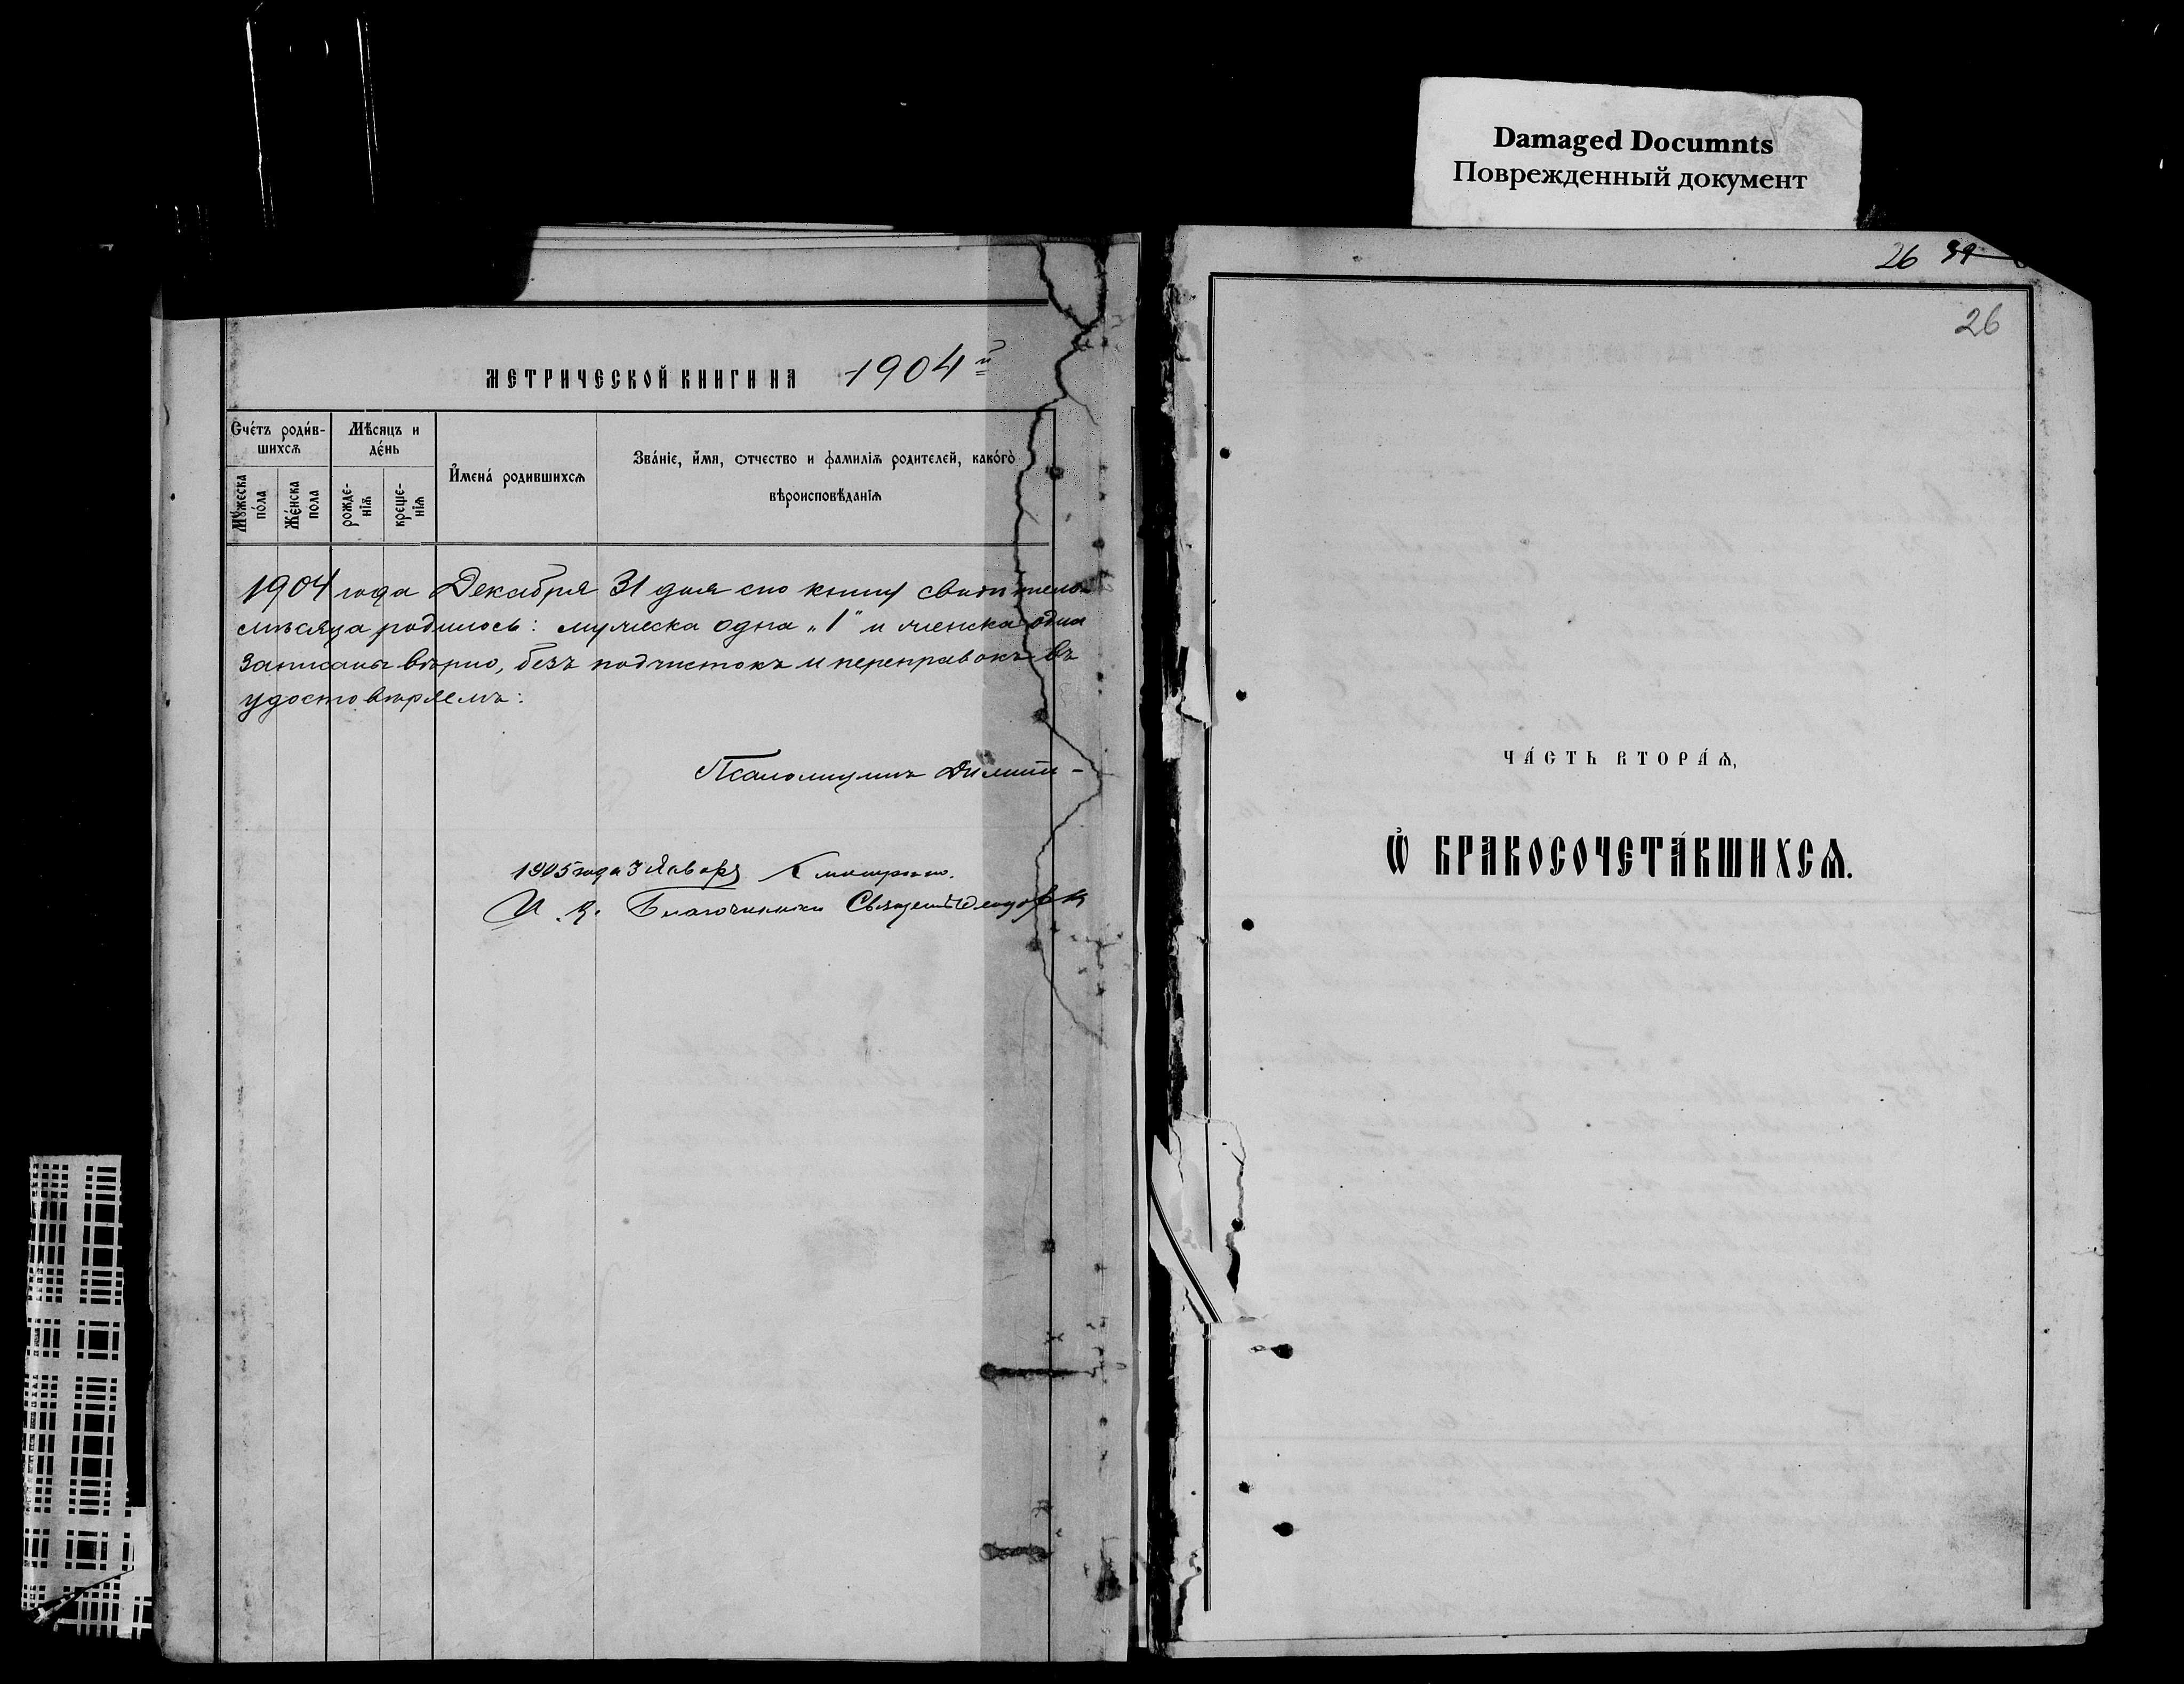 Damaged Documnts
Поврежденный документ
26 39
26
МЕТРИЧЕСКОЙ КНИГИ НА 1904й
Счётъ родив-
шихсѧ
Мѣсяцъ и
день
Имена родившихсѧ
Званіе, имя, ѻтчество и фамиліѧ родителей, какого
вѣроисповѣданіѧ
Мꙋжеска
пола
Женска
пола
рожде-
ніѧ
креще-
ніѧ
1904 года Декабря 31 дня сію книгу свидѣтель
мѣсяца родилось: мужеска одна „1" и женска одна
записаны вѣрно, безъ подчистокъ и переправокъ въ
удостовѣряемъ:
Псаломщикъ
1905 года 3 Января Смотрѣно.
И. д. Благочиннаго Священ.
ЧАСТЬ ВТОРАѦ,
Ѡ БРАКОСОЧЕТАВШИХСѦ.